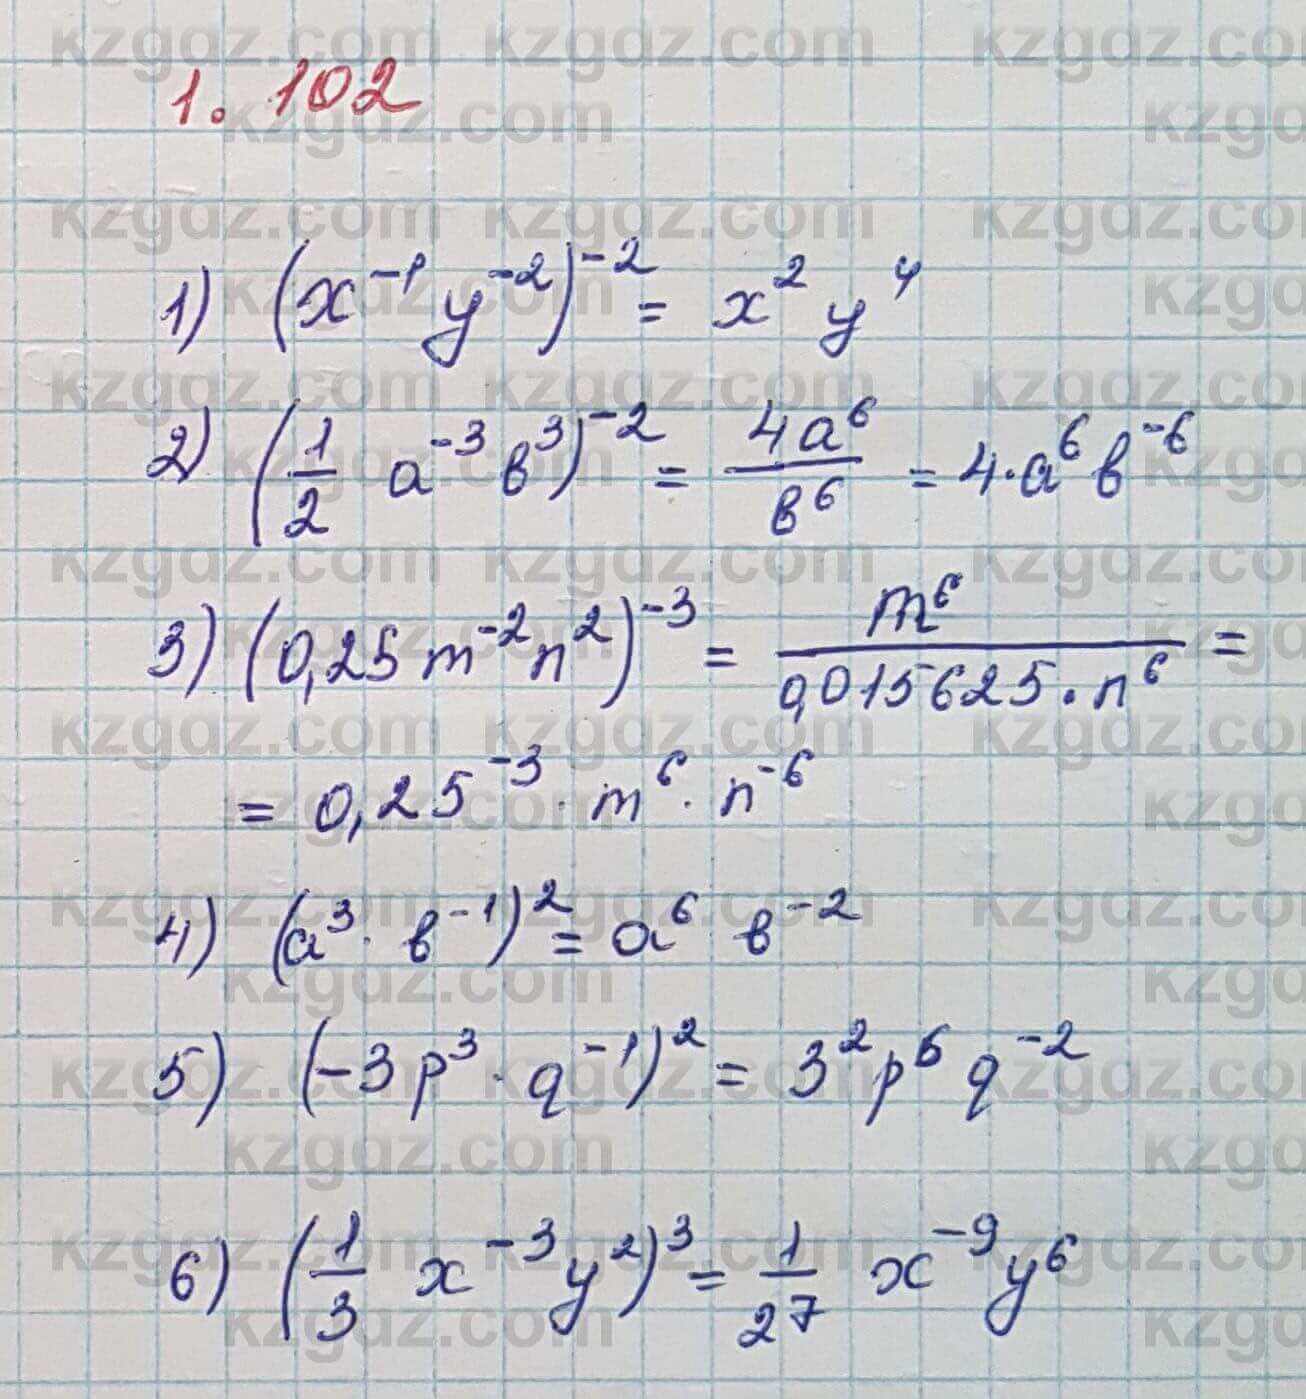 1.102
1) (x⁻¹ y⁻²)⁻² = x² y⁴
2) (1/2 a⁻³ b³)⁻² = 4a⁶/b⁶ = 4·a⁶ b⁻⁶
3) (0,25 m⁻² n²)⁻³ = m⁶/(0,015625·n⁶) =
= 0,25⁻³ · m⁶ · n⁻⁶
4) (a³ · b⁻¹)² = a⁶ b⁻²
5) (-3p³ · q⁻¹)² = 3² p⁶ q⁻²
6) (1/3 x⁻³ y²)³ = 1/27 x⁻⁹ y⁶
kzgdz.com